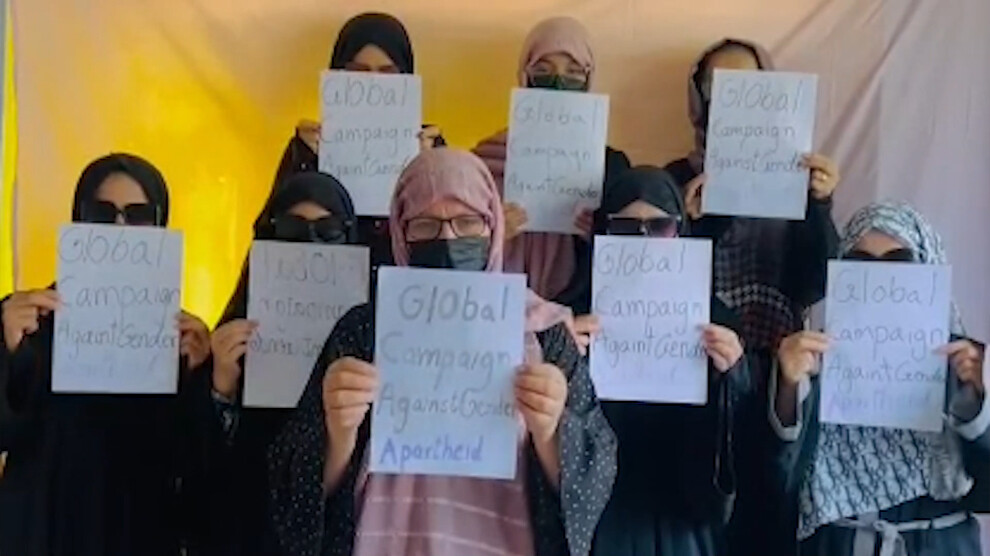 Global
Campaign
Against Gender
Global
Campaign
Againt Gender
Global
Campaign
Against Gender
Global
Campaign
Against Gender
Global
Campaign
Against Gender
Apartheid
Global
Campaign
Againt Gender
Global
Campaign
Againt Gender
Apartheid